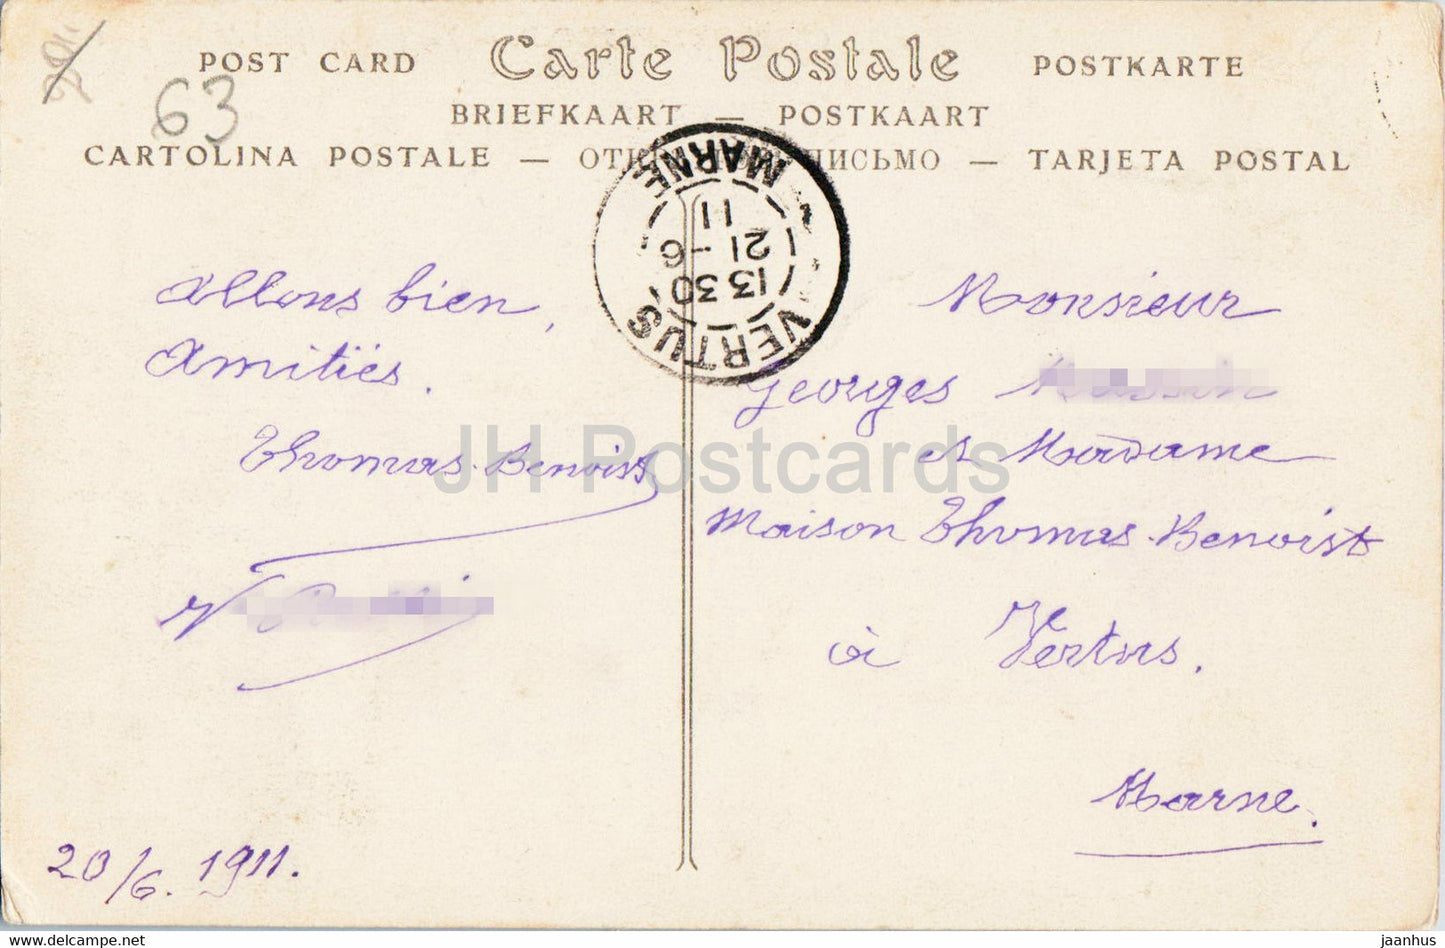 POST CARD Carte Postale POSTKARTE
63
BRIEFKAART — POSTKAART
CARTOLINA POSTALE — ПИСЬМО — TARJETA POSTAL
VERTUS
13 30
21 - 6
11
MARNE
Allons bien,
Amitiés.
Thomas-Benoist
20/6. 1911.
Monsieur
Georges
et Madame
Maison Thomas-Benoist
à Vertus.
Marne.
JH Postcards
www.delcampe.net
jaanhus